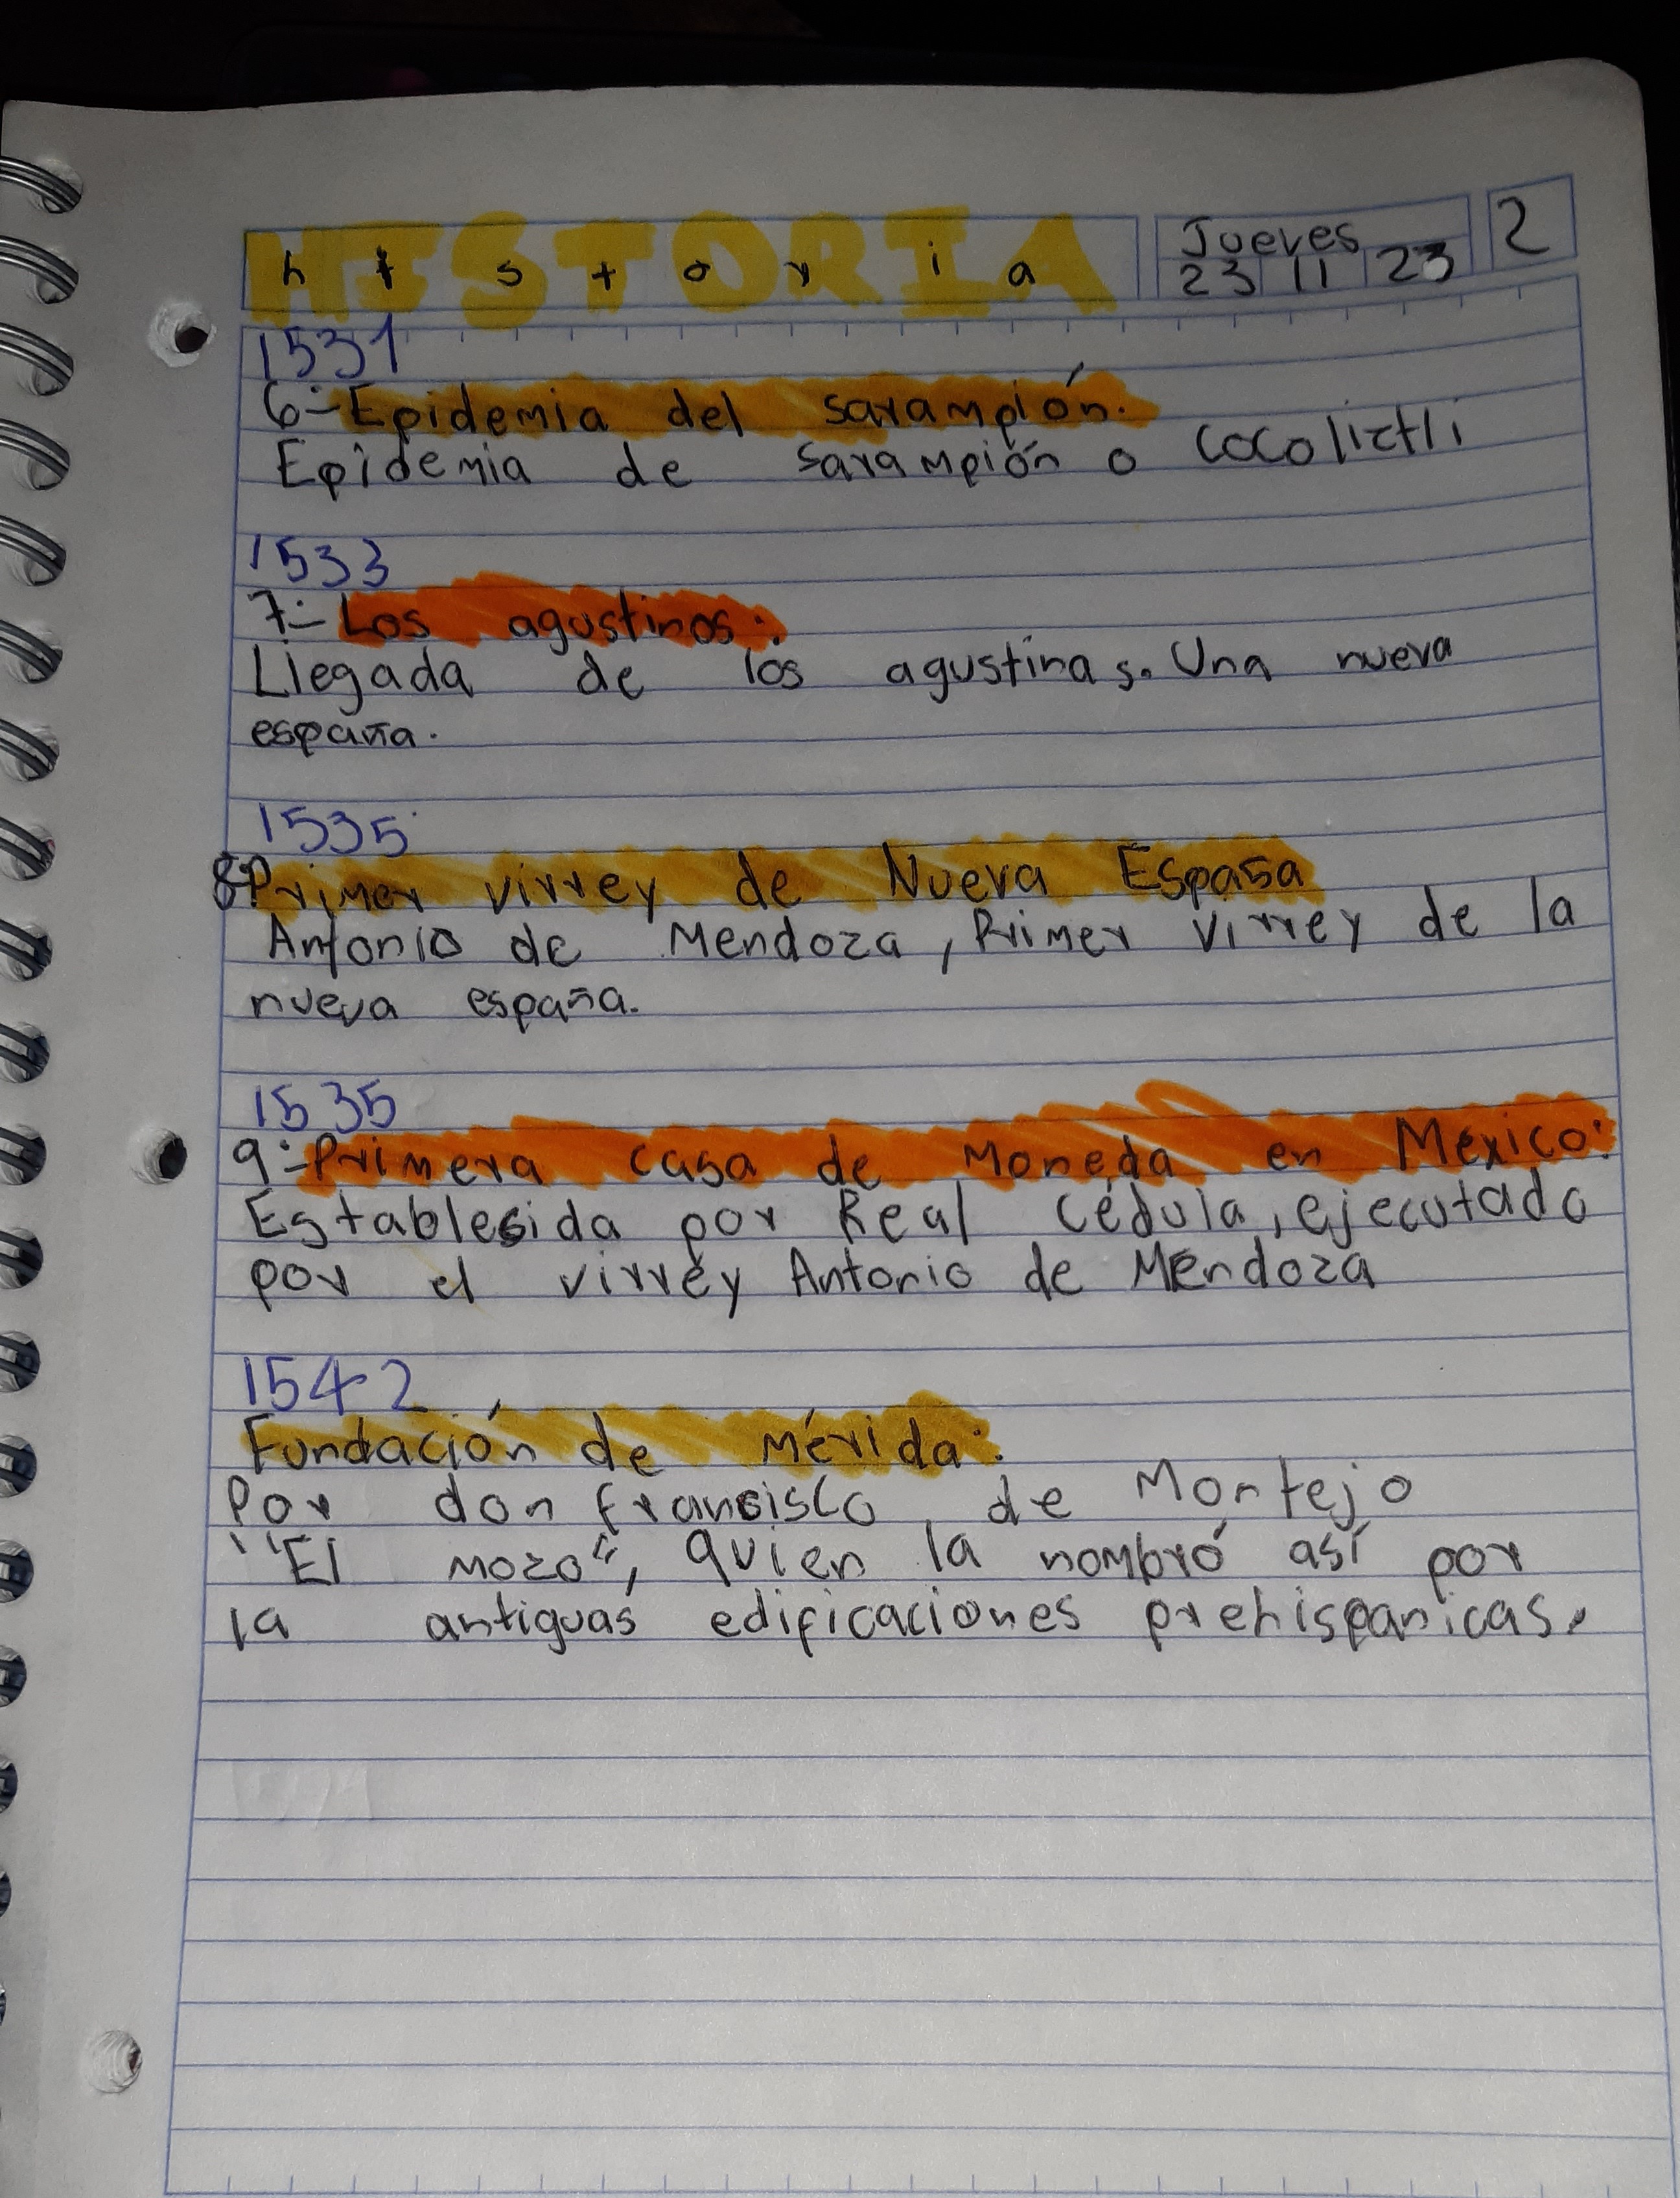 HISTORIA
historia
Jueves
23 11 23
2
1531
6:- Epidemia del sarampión.
Epidemia de sarampión o cocoliztli
1533
7:- Los agustinos:
Llegada de los agustinas. Una nueva
españa.
1535
8: Primer virrey de Nueva Espasa
Antonio de Mendoza, Primer Virrey de la
nueva españa.
1535
9:- Primera casa de Moneda en México:
Establesida por Real Cédula, ejecutado
por el virrey Antonio de Mendoza
1542
Fundación de Mérida:
Por don francisco de Montejo
"El mozo", quien la nombró así por
la antiguas edificaciones prehispanicas.